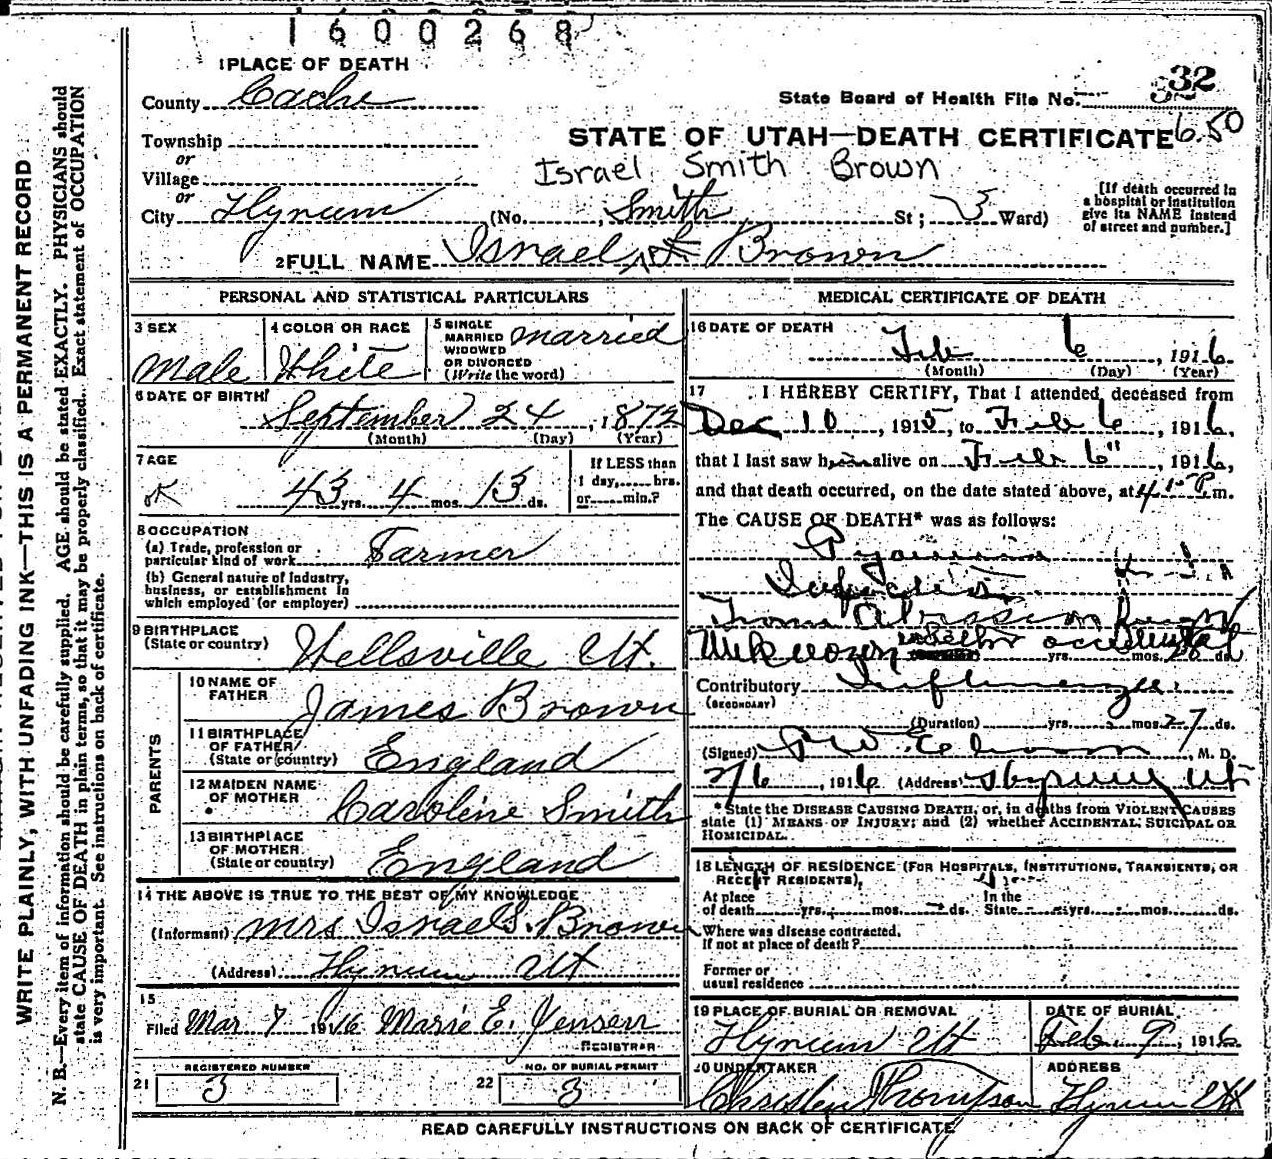 1600268
1 PLACE OF DEATH
32
County Cache
State Board of Health File No.
Township
or
STATE OF UTAH—DEATH CERTIFICATE 650
Village
or
Israel Smith Brown
City Hyrum (No. Smith St; 3 Ward)
[If death occurred in a hospital or institution give its NAME instead of street and number.]
2 FULL NAME Israel S. Brown
PERSONAL AND STATISTICAL PARTICULARS
3 SEX Male
4 COLOR OR RACE White
5 SINGLE MARRIED WIDOWED OR DIVORCED (Write the word) married
6 DATE OF BIRTH September 24, 1872
(Month) (Day) (Year)
7 AGE 43 yrs. 4 mos. 13 ds.
If LESS than 1 day, hrs. or min.?
8 OCCUPATION
(a) Trade, profession or particular kind of work Farmer
(b) General nature of industry, business, or establishment in which employed (or employer)
9 BIRTHPLACE (State or country) Wellsville Ut.
PARENTS
10 NAME OF FATHER James Brown
11 BIRTHPLACE OF FATHER (State or country) England
12 MAIDEN NAME OF MOTHER Caroline Smith
13 BIRTHPLACE OF MOTHER (State or country) England
14 THE ABOVE IS TRUE TO THE BEST OF MY KNOWLEDGE
(Informant) Mrs Israel S. Brown
(Address) Hyrum Ut
15
Filed Mar 7 1916 Marie E. Jensen
REGISTRAR
21 REGISTERED NUMBER 3
22 NO. OF BURIAL PERMIT 3
MEDICAL CERTIFICATE OF DEATH
16 DATE OF DEATH Feb 6, 1916
(Month) (Day) (Year)
17 I HEREBY CERTIFY, That I attended deceased from
Dec 10, 1915, to Feb 6, 1916,
that I last saw him alive on Feb 6", 1916,
and that death occurred, on the date stated above, at 4 P m.
The CAUSE OF DEATH* was as follows:
Pyaemia
Infection
from Abrasion
Unknown yrs. mos. ds.
Contributory Influenza
(SECONDARY)
(Duration) yrs. mos. 27 ds.
(Signed) M. D.
2/6, 1916 (Address) Hyrum Ut
*State the DISEASE CAUSING DEATH, or, in deaths from VIOLENT CAUSES
state (1) MEANS OF INJURY; and (2) whether ACCIDENTAL, SUICIDAL OR
HOMICIDAL.
18 LENGTH OF RESIDENCE (FOR HOSPITALS, INSTITUTIONS, TRANSIENTS, OR
RECENT RESIDENTS),
At place of death yrs. mos. ds. In the State yrs. mos. ds.
Where was disease contracted,
If not at place of death?
Former or
usual residence
19 PLACE OF BURIAL OR REMOVAL Hyrum Ut
DATE OF BURIAL Feb 9, 1916
20 UNDERTAKER Thompson
ADDRESS Hyrum Ut
READ CAREFULLY INSTRUCTIONS ON BACK OF CERTIFICATE
WRITE PLAINLY, WITH UNFADING INK—THIS IS A PERMANENT RECORD
N. B.—Every item of information should be carefully supplied. AGE should be stated EXACTLY. PHYSICIANS should
state CAUSE OF DEATH in plain terms, so that it may be properly classified. Exact statement of OCCUPATION
is very important. See instructions on back of certificate.